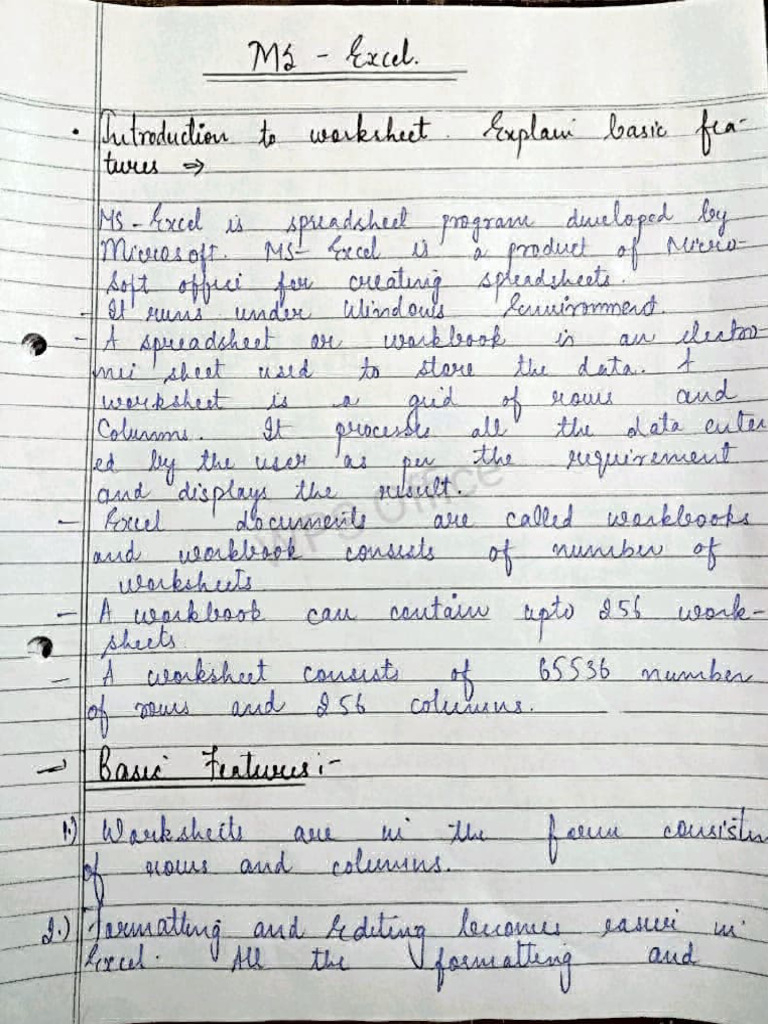 MS - Excel.
• Introduction to worksheet. Explain basic fea-
tures ⇒
MS-Excel is spreadsheet program developed by
Microsoft. MS-Excel is a product of Micro-
soft office for creating spreadsheets.
- It runs under Windows Environment.
- A spreadsheet or workbook is an electro-
nic sheet used to store the data. A
worksheet is a grid of rows and
Columns. It processes all the data enter
ed by the user as per the requirement
and displays the result.
- Excel documents are called workbooks
and workbook consists of number of
worksheets
- A workbook can contain upto 256 work-
sheets.
- A worksheet consists of 65536 number
of rows and 256 columns.
→ Basic Features:-
1.) Worksheets are in the form consistin
of rows and columns.
2.) Formatting and Editing becomes easier in
Excel. All the formatting and
WPS Office